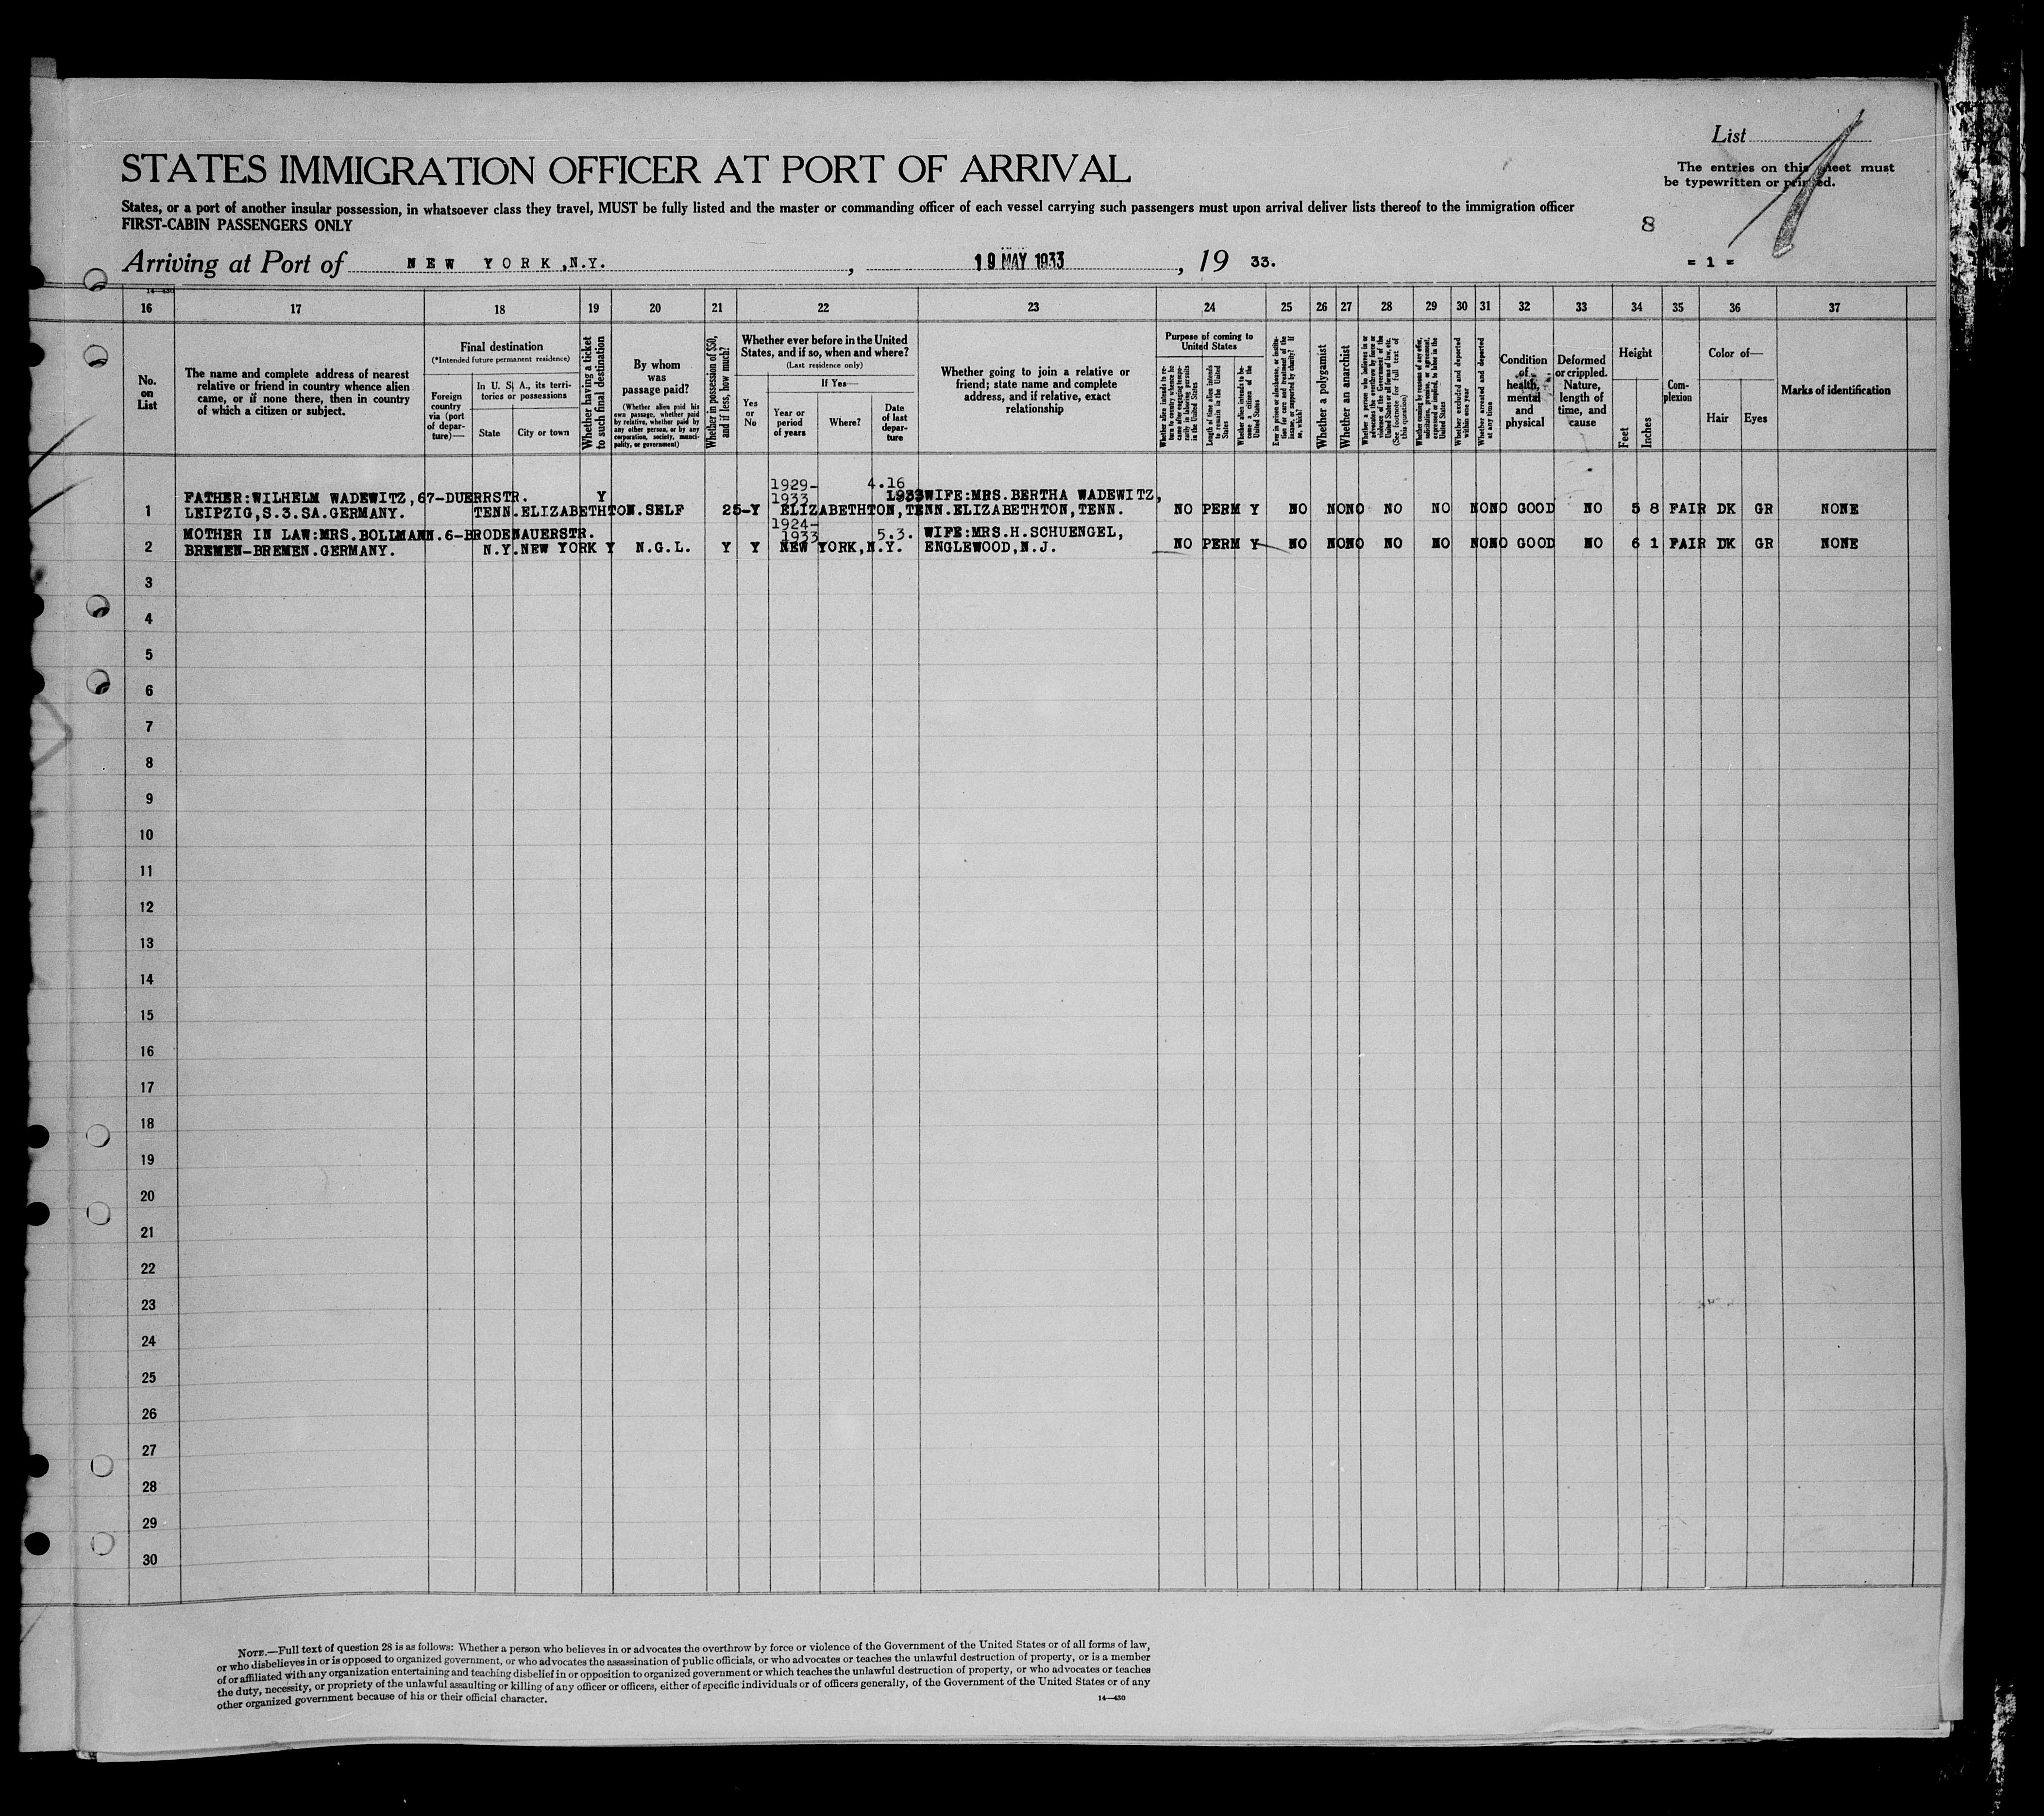 List
The entries on this sheet must
be typewritten or printed.
STATES IMMIGRATION OFFICER AT PORT OF ARRIVAL
States, or a port of another insular possession, in whatsoever class they travel, MUST be fully listed and the master or commanding officer of each vessel carrying such passengers must upon arrival deliver lists thereof to the immigration officer
FIRST-CABIN PASSENGERS ONLY
8
Arriving at Port of NEW YORK,N.Y., 19 MAY 1933, 19 33.
= 1 =
14—430
16 17 18 19 20 21 22 23 24 25 26 27 28 29 30 31 32 33 34 35 36 37
No.
on
List
The name and complete address of nearest
relative or friend in country whence alien
came, or if none there, then in country
of which a citizen or subject.
Final destination
(*Intended future permanent residence)
Foreign
country
via (port
of depar-
ture)—
In U. S. A., its terri-
tories or possessions
State
City or town
Whether having a ticket
to such final destination
By whom
was
passage paid?
(Whether alien paid his
own passage, whether paid
by relative, whether paid by
any other person, or by any
corporation, society, munici-
pality, or government)
Whether in possession of $50,
and if less, how much?
Whether ever before in the United
States, and if so, when and where?
(Last residence only)
Yes
or
No
If Yes—
Year or
period
of years
Where?
Date
of last
depar-
ture
Whether going to join a relative or
friend; state name and complete
address, and if relative, exact
relationship
Purpose of coming to
United States
Whether alien intends to re-
turn to country whence he
came after engaging tempo-
rarily in laboring pursuits
in the United States
Length of time alien intends
to remain in the United
States
Whether alien intends to be-
come a citizen of the
United States
Ever in prison or almshouse, or institu-
tion for care and treatment of the
insane, or supported by charity? If
so, which?
Whether a polygamist
Whether an anarchist
Whether a person who believes in or
advocates the overthrow by force or
violence of the Government of the
United States or all forms of law, etc.
(See footnote for full text of
this question)
Whether coming by reasons of any offer,
solicitation, promise, or agreement,
expressed or implied, to labor in the
United States
Whether excluded and deported
within one year
Whether arrested and deported
at any time
Condition
of
health,
mental
and
physical
Deformed
or crippled.
Nature,
length of
time, and
cause
Height
Feet
Inches
Com-
plexion
Color of—
Hair
Eyes
Marks of identification
1929- 4.16
FATHER:WILHELM WADEWITZ,67-DUERRSTR. Y 1933 1933 WIFE:MRS.BERTHA WADEWITZ,
1 LEIPZIG,S.3.SA.GERMANY. TENN.ELIZABETHTON.SELF 25-Y ELIZABETHTON,TENN.ELIZABETHTON,TENN. NO PERM Y NO NO NO NO NO NO NO GOOD NO 5 8 FAIR DK GR NONE
1924-
MOTHER IN LAW:MRS.BOLLMANN.6-BRODENAUERSTR. 1933 5.3. WIFE:MRS.H.SCHUENGEL,
2 BREMEN-BREMEN.GERMANY. N.Y.NEW YORK Y N.G.L. Y Y NEW YORK,N.Y. ENGLEWOOD,N.J. NO PERM Y NO NO NO NO NO NO NO GOOD NO 6 1 FAIR DK GR NONE
3
4
5
6
7
8
9
10
11
12
13
14
15
16
17
18
19
20
21
22
23
24
25
26
27
28
29
30
NOTE.—Full text of question 28 is as follows: Whether a person who believes in or advocates the overthrow by force or violence of the Government of the United States or of all forms of law,
or who disbelieves in or is opposed to organized government, or who advocates the assassination of public officials, or who advocates or teaches the unlawful destruction of property, or is a member
of or affiliated with any organization entertaining and teaching disbelief in or opposition to organized government or which teaches the unlawful destruction of property, or who advocates or teaches
the duty, necessity, or propriety of the unlawful assaulting or killing of any officer or officers, either of specific individuals or of officers generally, of the Government of the United States or of any
other organized government because of his or their official character.
14—430